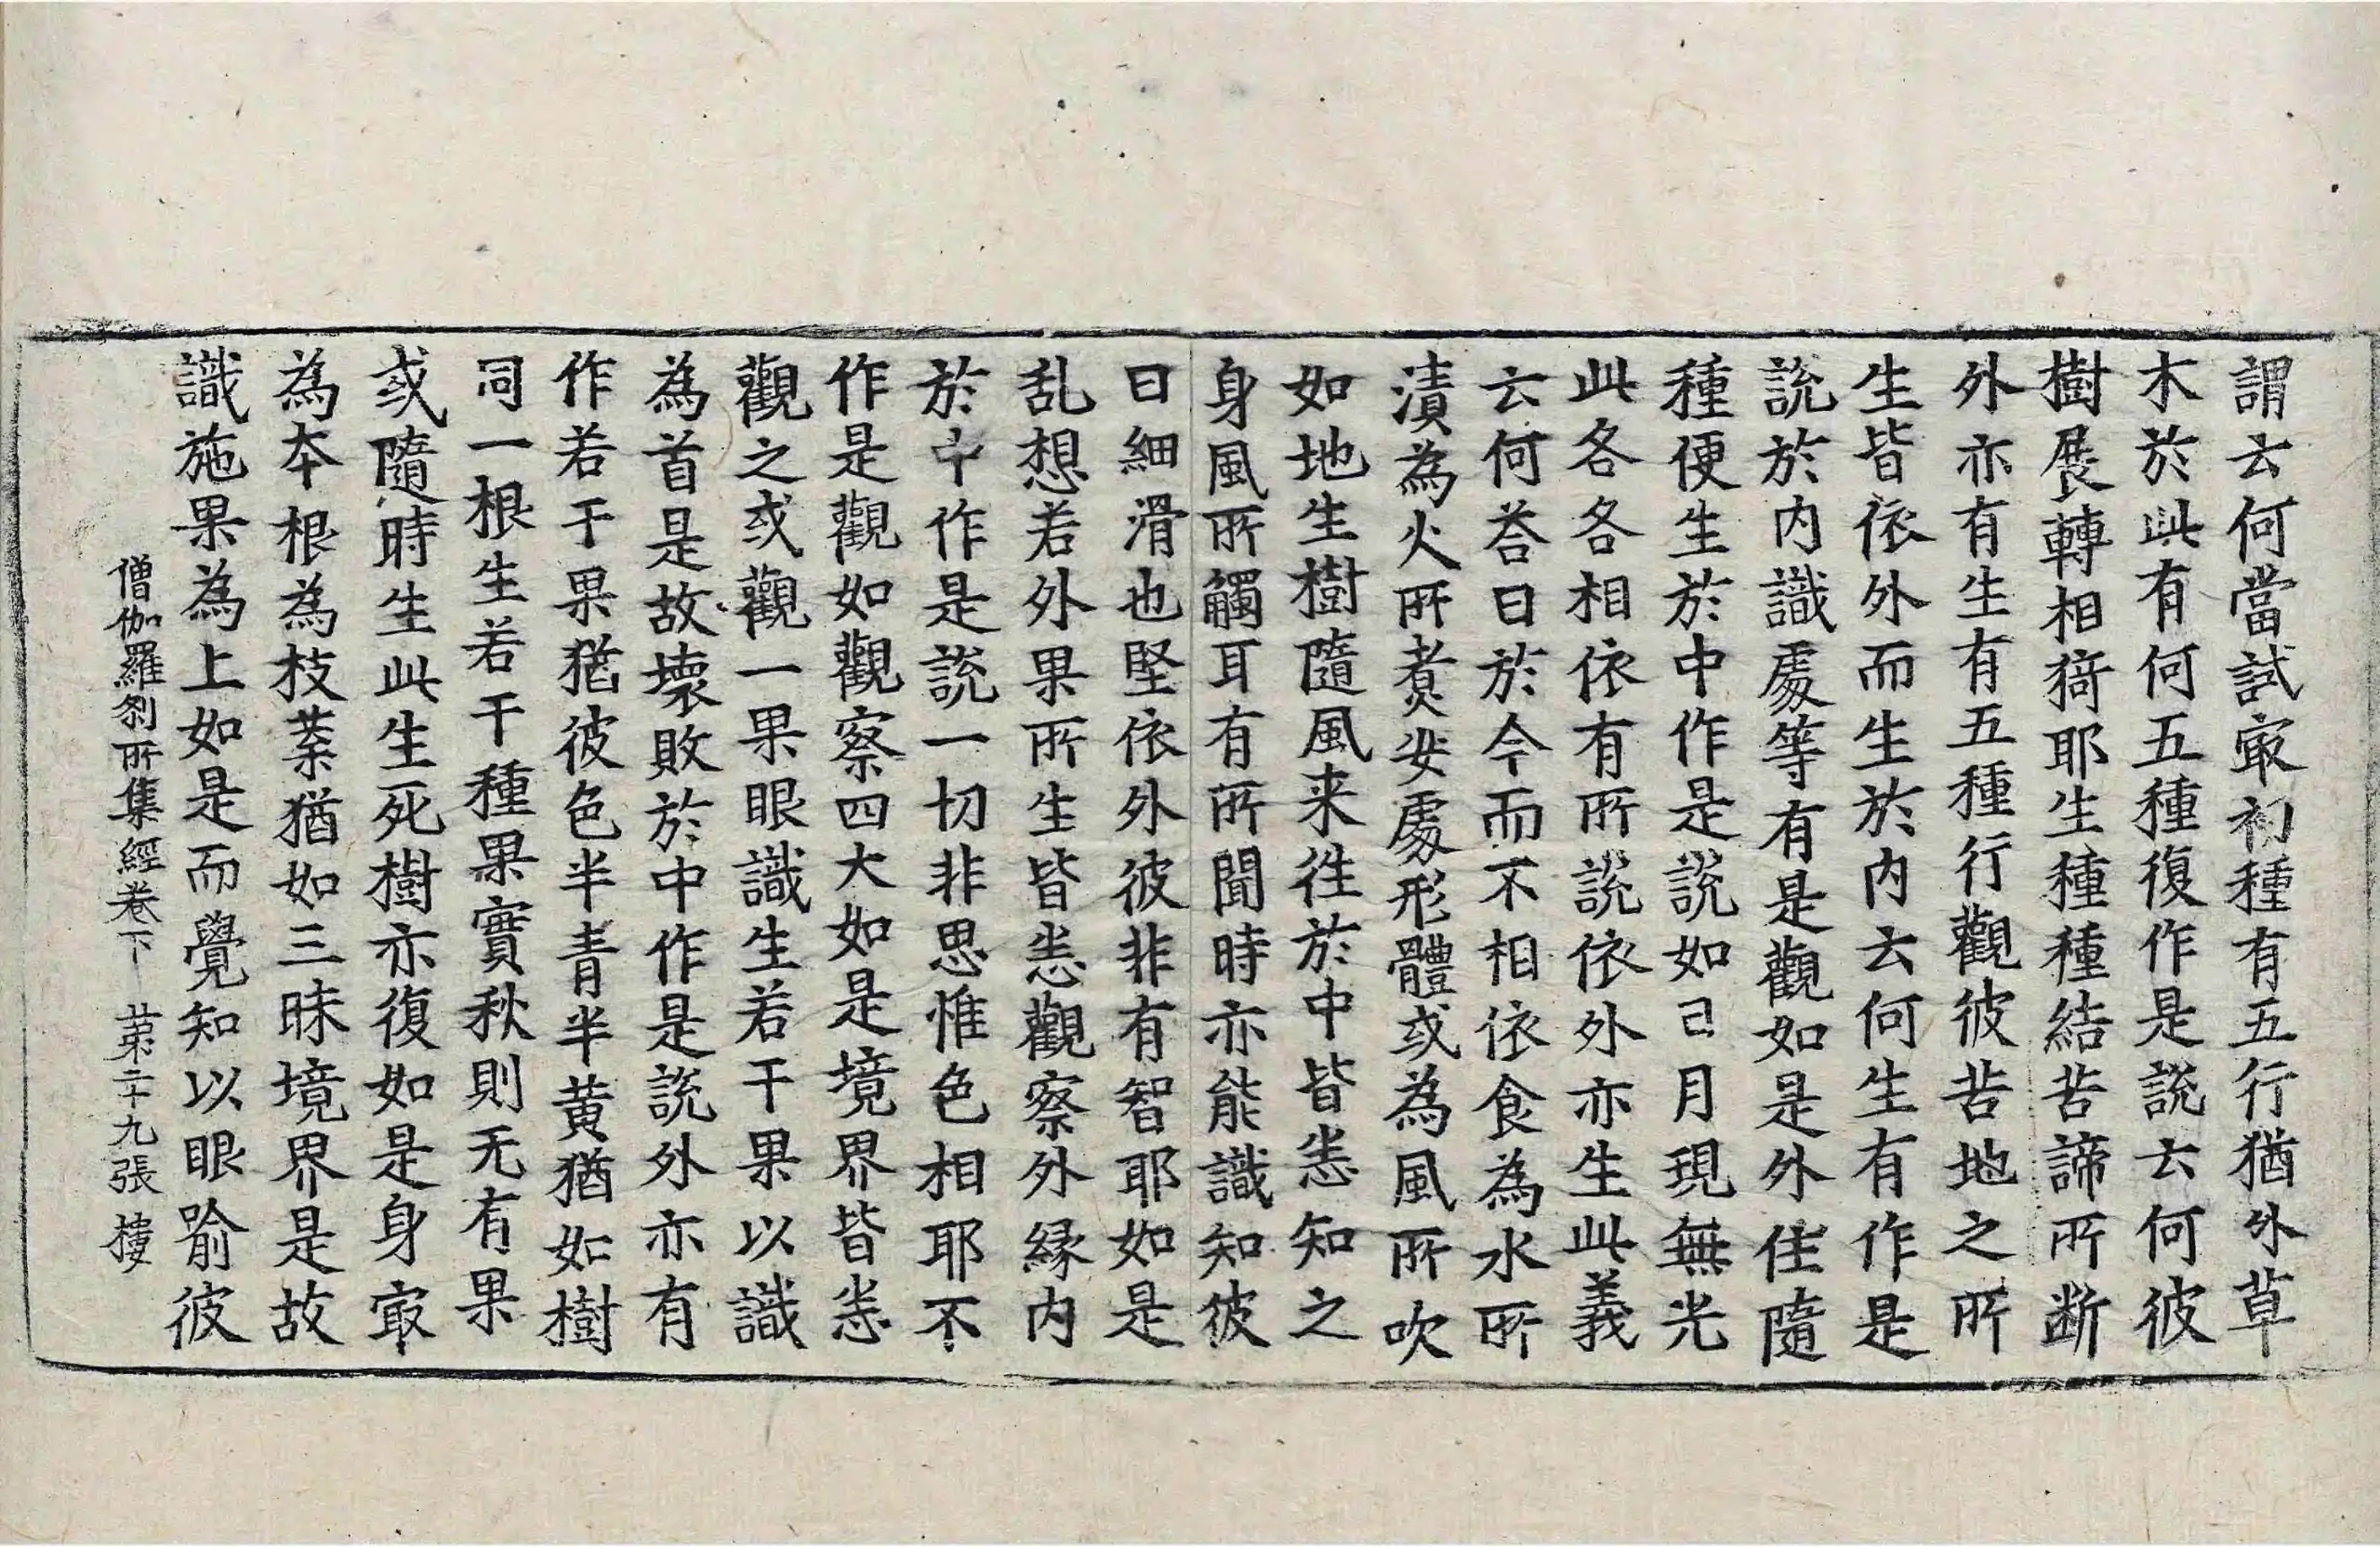 謂云何當試㝡初種有五行猶外草
木於此有何五種復作是說云何彼
樹展轉相猗耶生種種結苦諦所断
外亦有生有五種行觀彼苦地之所
生皆依外而生於內云何生有作是
說於內識處等有是觀如是外住隨
種便生於中作是說如已月現無光
此各各相依有所說依外亦生此義
云何荅曰於今而不相依食為水所
漬為火所煑安處形體或為風所吹
如地生樹隨風来徃於中皆悉知之
身風所觸耳有所聞時亦能識知彼
曰細滑也堅依外彼非有智耶如是
乱想若外果所生皆悉觀察外縁內
於中作是說一切非思惟色相耶不
作是觀如觀察四大如是境界皆悉
觀之或觀一果眼識生若干果以識
為首是故壞敗於中作是說外亦有
作若干果猶彼色半青半黄猶如樹
同一根生若干種果實秋則无有果
或隨時生此生死樹亦復如是身㝡
為本根為枝葉猶如三昧境界是故
識施果為上如是而覺知以眼喻彼
僧伽羅刹所集經卷下 苐二十九張 樓